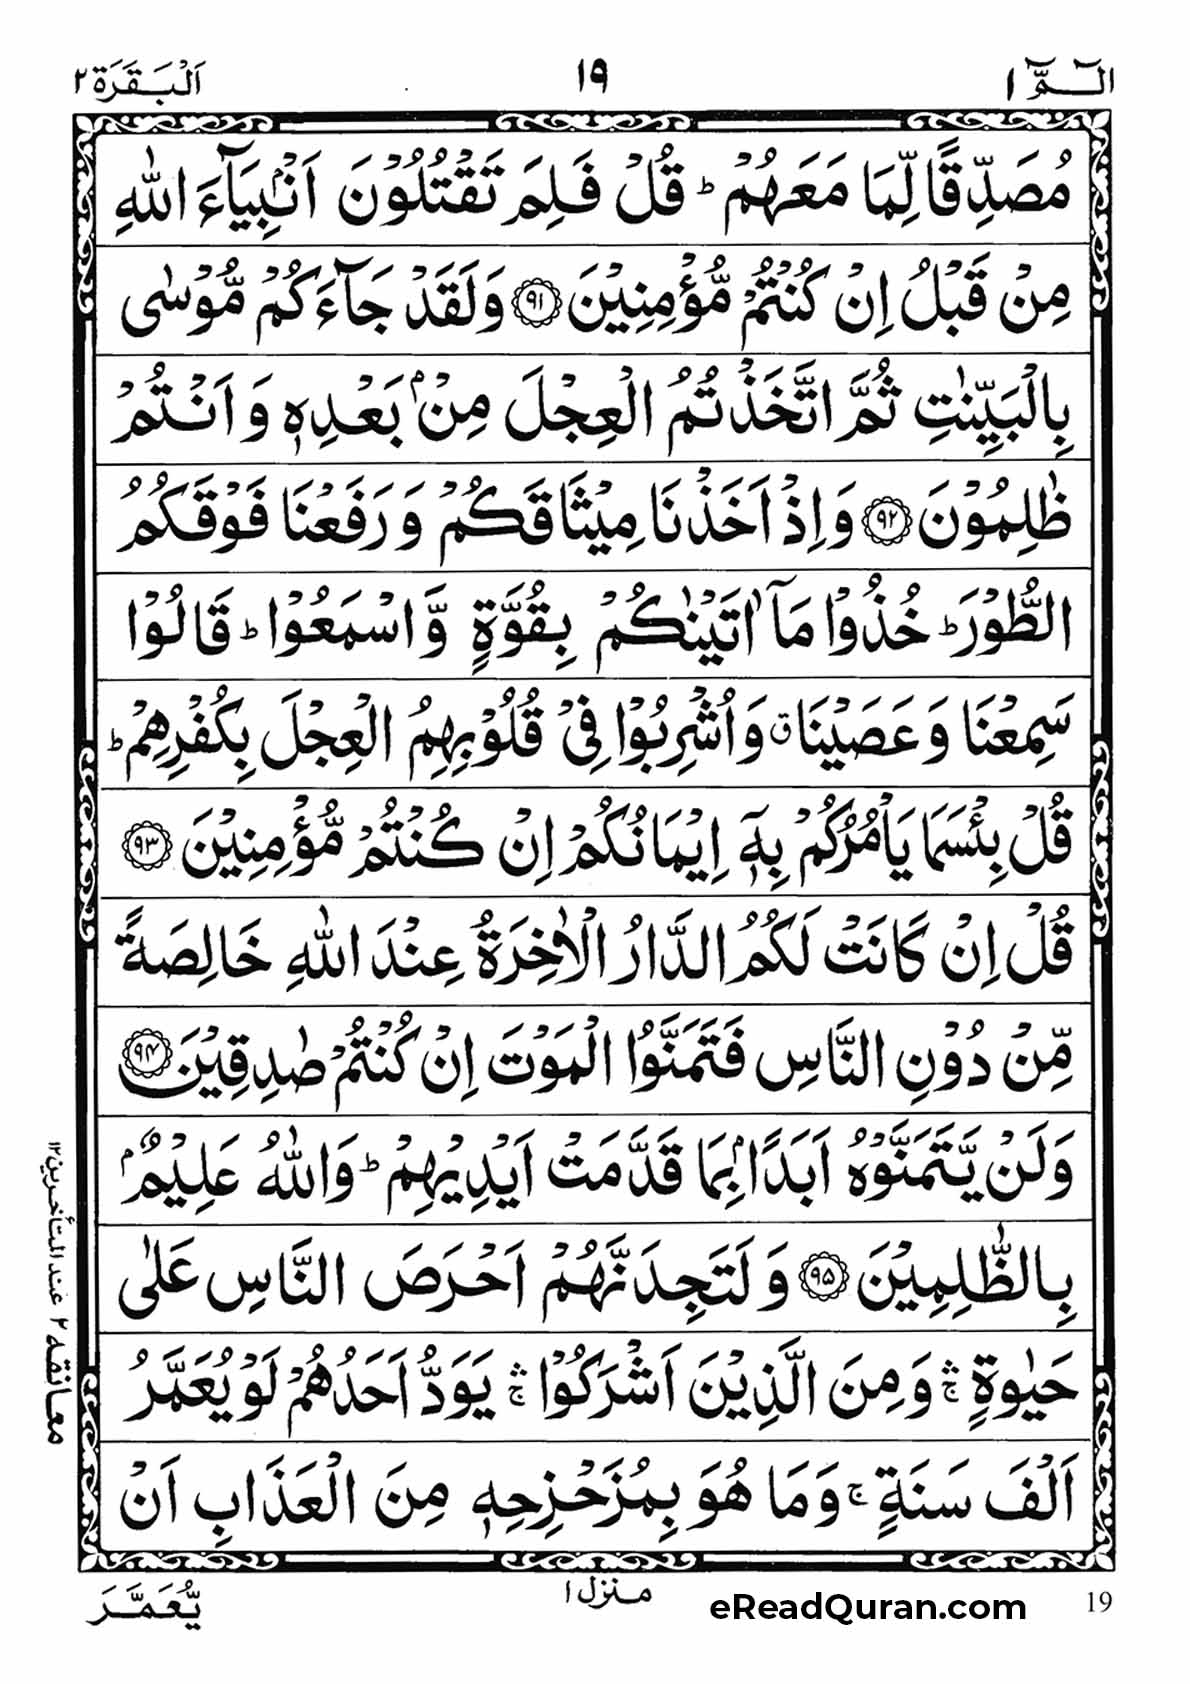 الٓمّٓ ١
١٩
اَلْبَقَرَة ٢
مُصَدِّقًا لِّمَا مَعَهُمْ ؕ قُلْ فَلِمَ تَقْتُلُوْنَ اَنْۢبِيَآءَ اللّٰهِ
مِنْ قَبْلُ اِنْ كُنْتُمْ مُّؤْمِنِيْنَ ﴿٩١﴾ وَلَقَدْ جَآءَكُمْ مُّوْسٰى
بِالْبَيِّنٰتِ ثُمَّ اتَّخَذْتُمُ الْعِجْلَ مِنْۢ بَعْدِهٖ وَاَنْتُمْ
ظٰلِمُوْنَ ﴿٩٢﴾ وَاِذْ اَخَذْنَا مِيْثَاقَكُمْ وَرَفَعْنَا فَوْقَكُمُ
الطُّوْرَ ؕ خُذُوْا مَاۤ اٰتَيْنٰكُمْ بِقُوَّةٍ وَّاسْمَعُوْا ؕ قَالُوْا
سَمِعْنَا وَعَصَيْنَا ۗ وَاُشْرِبُوْا فِيْ قُلُوْبِهِمُ الْعِجْلَ بِكُفْرِهِمْ ؕ
قُلْ بِئْسَمَا يَاْمُرُكُمْ بِهٖۤ اِيْمَانُكُمْ اِنْ كُنْتُمْ مُّؤْمِنِيْنَ ﴿٩٣﴾
قُلْ اِنْ كَانَتْ لَكُمُ الدَّارُ الْاٰخِرَةُ عِنْدَ اللّٰهِ خَالِصَةً
مِّنْ دُوْنِ النَّاسِ فَتَمَنَّوُا الْمَوْتَ اِنْ كُنْتُمْ صٰدِقِيْنَ ﴿٩٤﴾
وَلَنْ يَّتَمَنَّوْهُ اَبَدًاۢ بِمَا قَدَّمَتْ اَيْدِيْهِمْ ؕ وَاللّٰهُ عَلِيْمٌۢ
بِالظّٰلِمِيْنَ ﴿٩٥﴾ وَلَتَجِدَنَّهُمْ اَحْرَصَ النَّاسِ عَلٰى
حَيٰوةٍ ۛۚ وَمِنَ الَّذِيْنَ اَشْرَكُوْا ۛۚ يَوَدُّ اَحَدُهُمْ لَوْ يُعَمَّرُ
اَلْفَ سَنَةٍ ۚ وَمَا هُوَ بِمُزَحْزِحِهٖ مِنَ الْعَذَابِ اَنْ
معانقه ٢ عند المتأخرين ١٢
منزل ١
يُّعَمَّرَ
eReadQuran.com
19